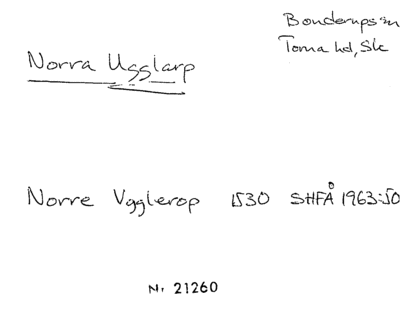 Bonderups sn
Torna hd, Sk
Norra Ugglarp
Norre Vgglerop 1530 SHFÅ 1963:50
Nr 21260